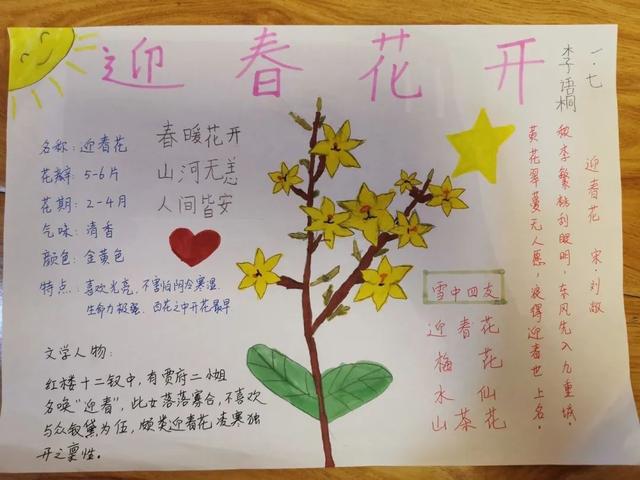 迎春花开
一.七
李语桐
名称：迎春花
花瓣：5-6片
花期：2-4月
气味：清香
颜色：金黄色
特点：喜欢光亮，不害怕阴冷寒湿，
生命力极强，百花之中开花最早
春暖花开
山河无恙
人间皆安
文学人物：
红楼十二钗中，有贾府二小姐
名唤“迎春”，此女落落寡合，不喜欢
与众钗黛为伍，颇类迎春花凌寒独
开之禀性。
雪中四友
迎春花
梅花
水仙
山茶花
迎春花 宋·刘敞
李繁桃刮眼明，东风先入九重城。
黄花翠蔓无人愿，浪得迎春世上名。